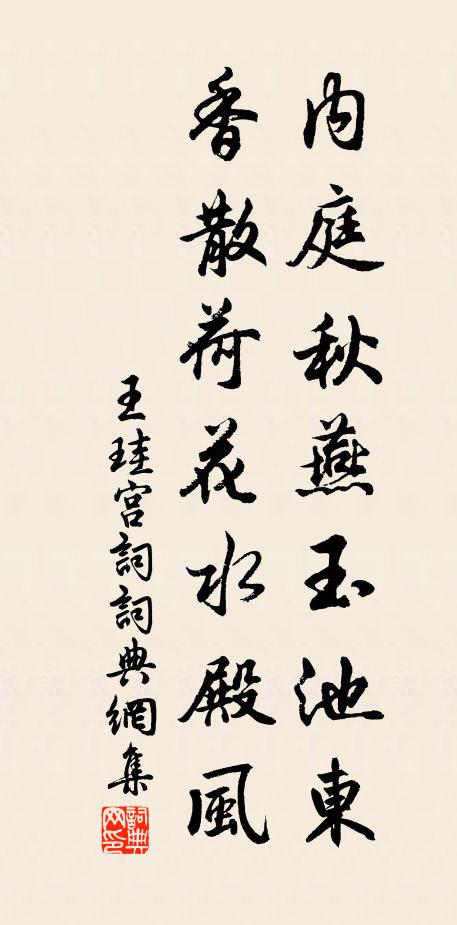 内庭秋燕玉池東
香散荷花水殿風
王珪宮詞詞典網集
詞典网印